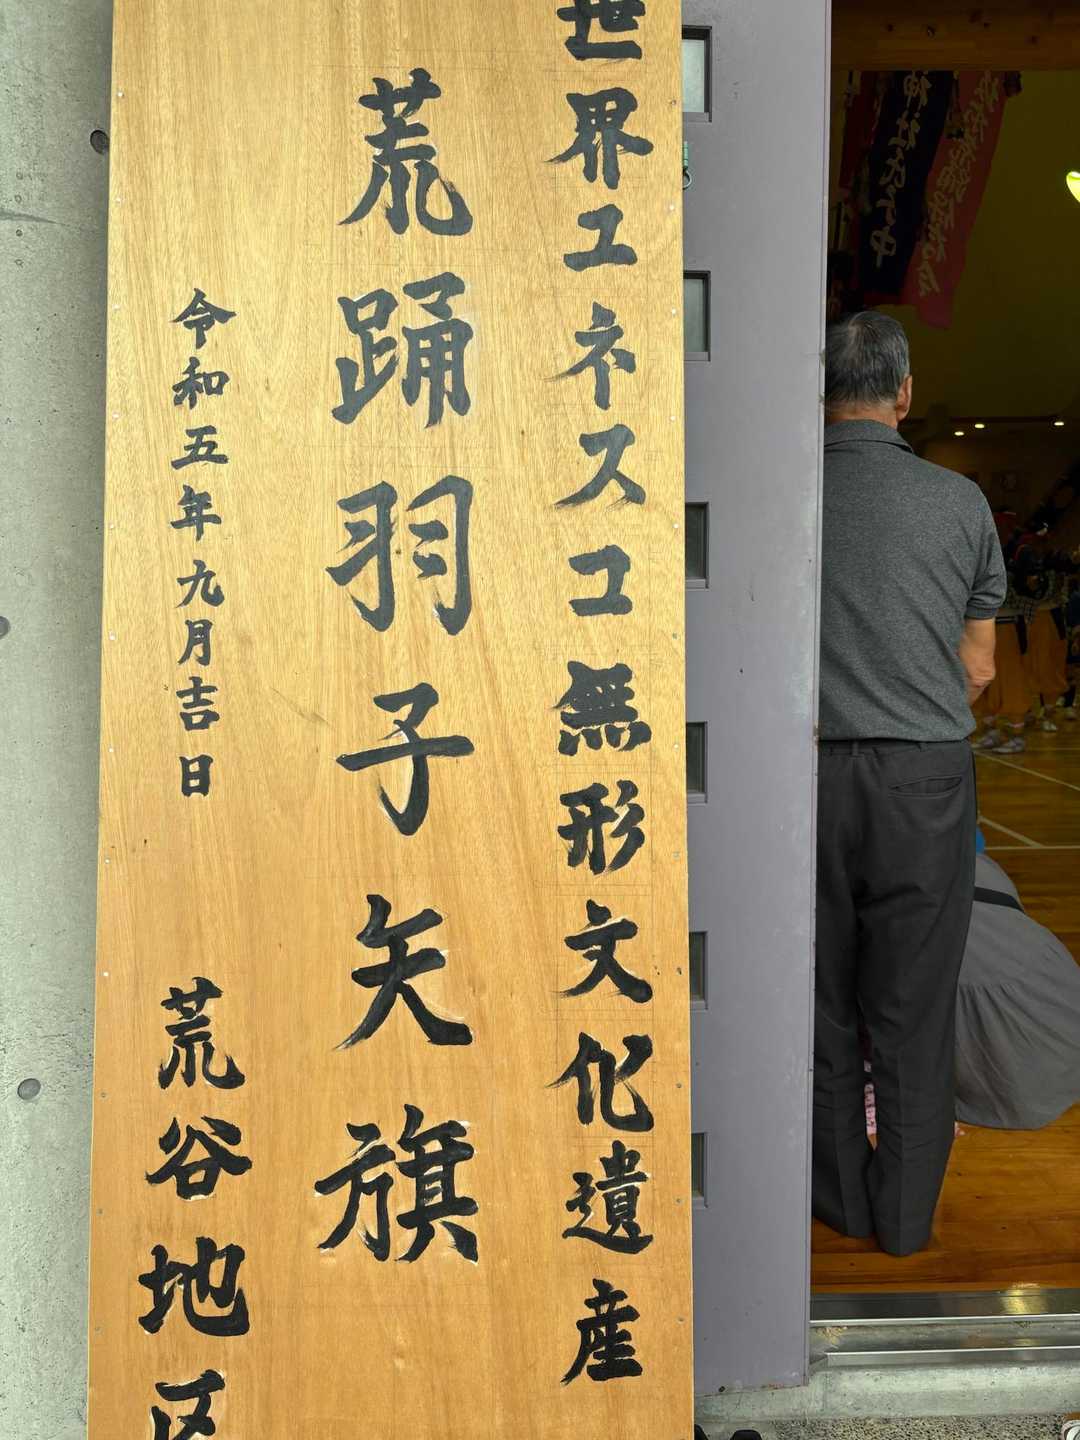 世界ユネスコ無形文化遺産
荒踊羽子矢旗
令和五年九月吉日
荒谷地区